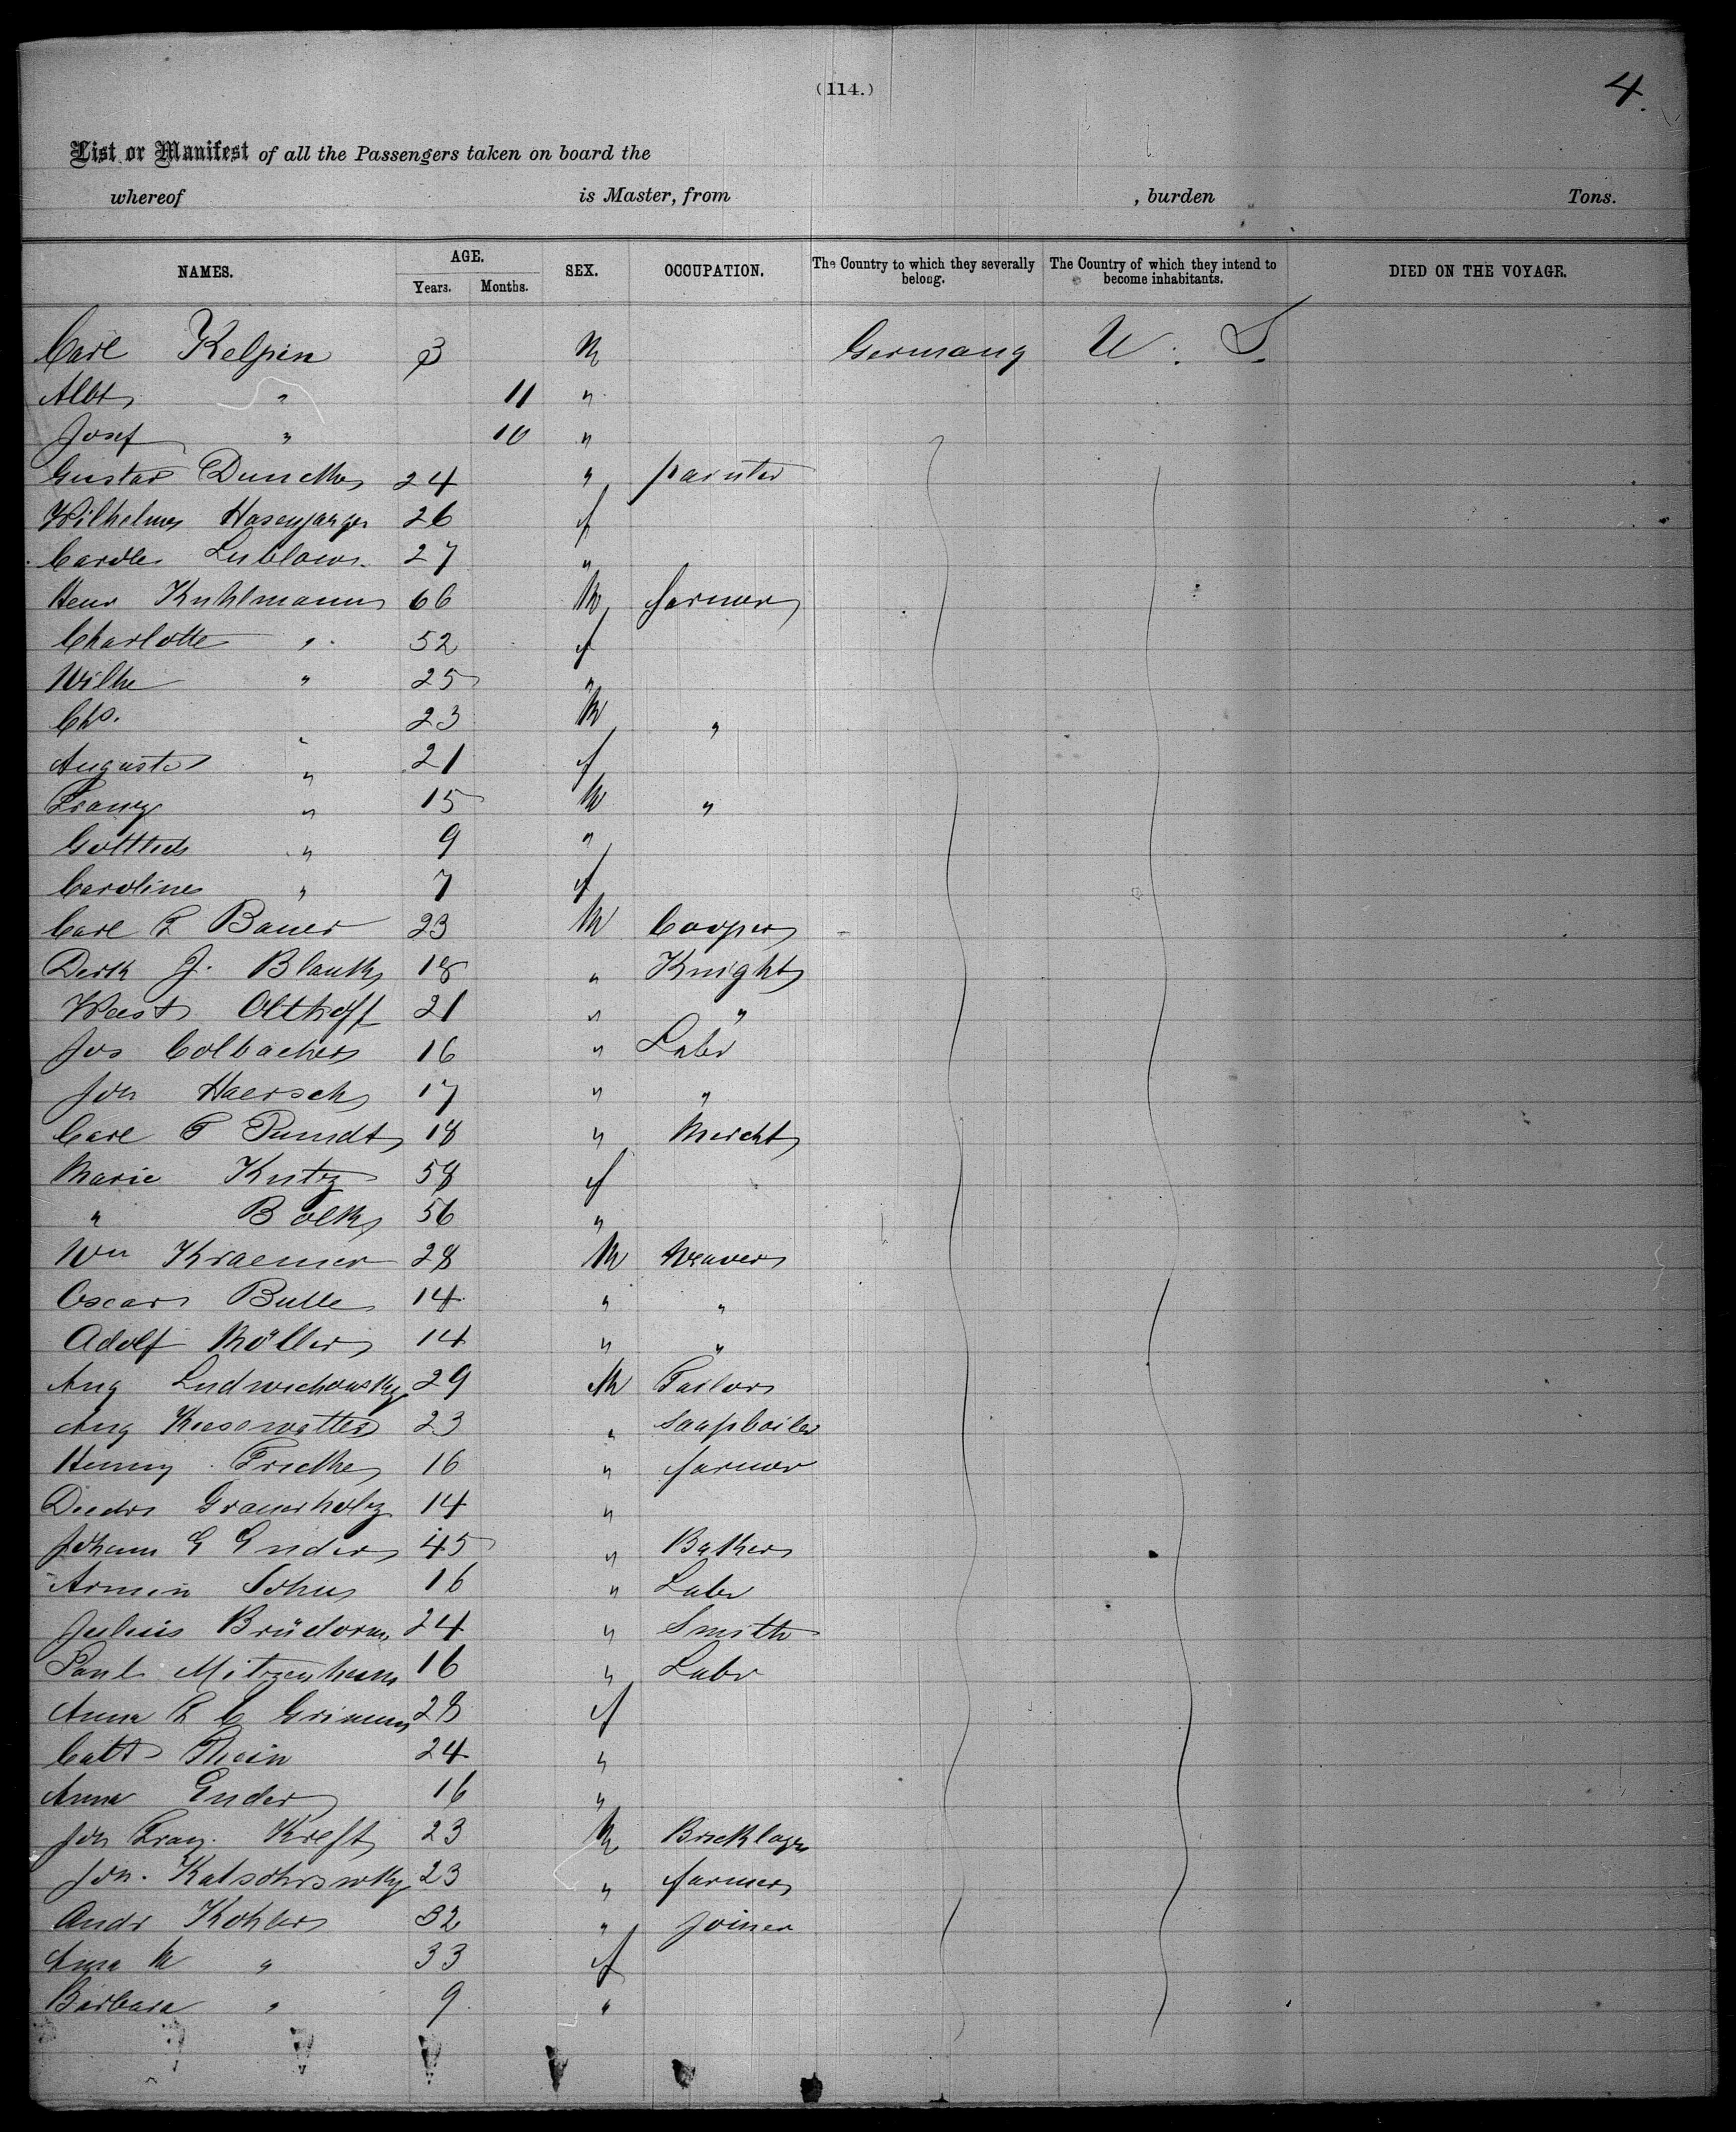 (114.)
4.
List or Manifest of all the Passengers taken on board the
whereof is Master, from , burden Tons.
NAMES. AGE. Years. Months. SEX. OCCUPATION. The Country to which they severally belong. The Country of which they intend to become inhabitants. DIED ON THE VOYAGE.
Carl Kelpin 3 M Germany U. S.
Albt " 11 "
Josef " 10 "
Gustav 24 " painter
26 f
27 "
Henr Kuhlmann 66 M farmer
Charlotte " 52 f
Wilhe " 25 "
Chs. " 23 M "
Auguste " 21 f
Franz " 15 M "
Gottlieb " 9 "
Caroline " 7 f
Carl F Bauer 23 M Cooper
Derk J. Blank 18 " Knight
Olthoff 21 " "
Jos Colbacher 16 " Labr
Joh Haersch 17 " "
Carl F Pundt 18 " Mercht
Marie Kutz 58 f
" Bolk 56 "
Wm Kraemer 28 M Weaver
Oscar Bulle 14 " "
Adolf Möller 14 " "
Aug Ludwichowsky 29 M Tailor
Aug Kiesewetter 23 " Soapboiler
Henny Fricke 16 " farmer
Diedr Gramholz 14 "
Johann G Ender 45 " Baker
Armin 16 " Labr
Julius 24 " Smith
Paul Mitzenheim 16 " Labr
Anna R C Grimm 28 f
Cath Thein 24 "
Anna Ender 16 "
Joh Franz Kreft 23 M Bricklayer
Joh. 23 " farmer
Andr Kohler 32 " Joiner
Anna M " 33 f
Barbara " 9 "